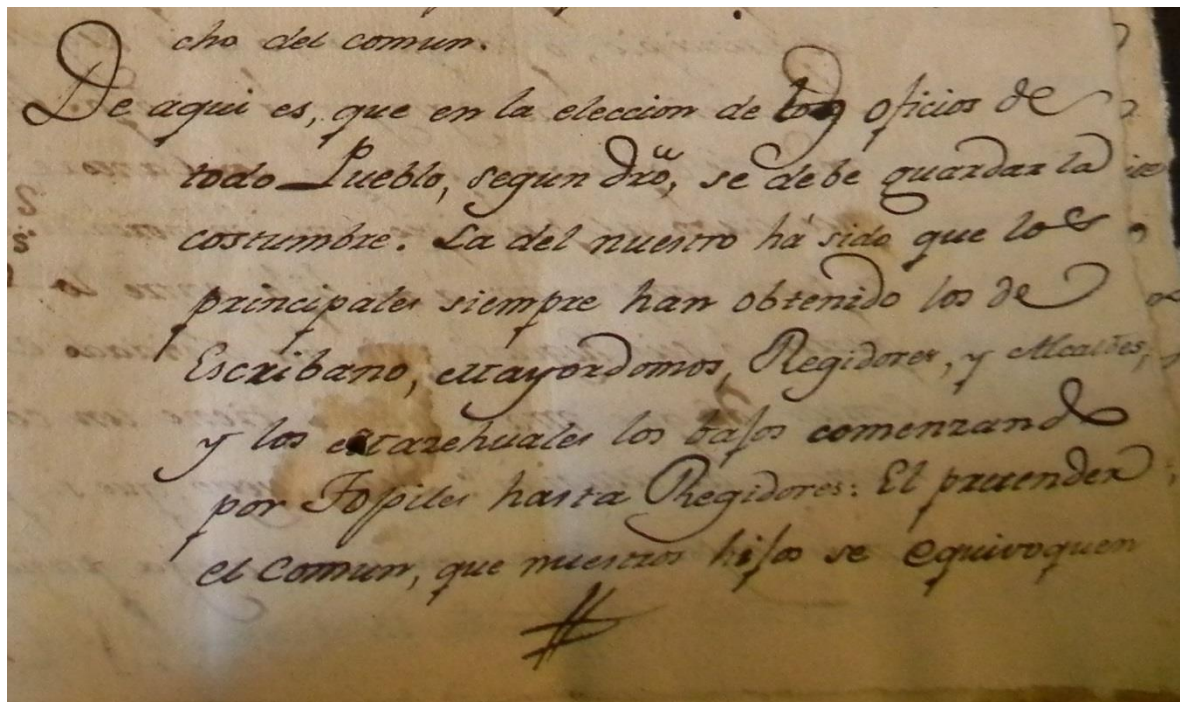 cho del comun.
De aqui es, que en la eleccion de los oficios de
todo Pueblo, segun dro, se debe guardar la
costumbre. La del nuestro há sido que los
principales siempre han obtenido los de
Escribano, Mayordomos, Regidores, y Alcaldes,
y los Mazehuales los bajos comenzando
por Topiles hasta Regidores: El pretender
el Comun, que nuestros hijos se equivoquen